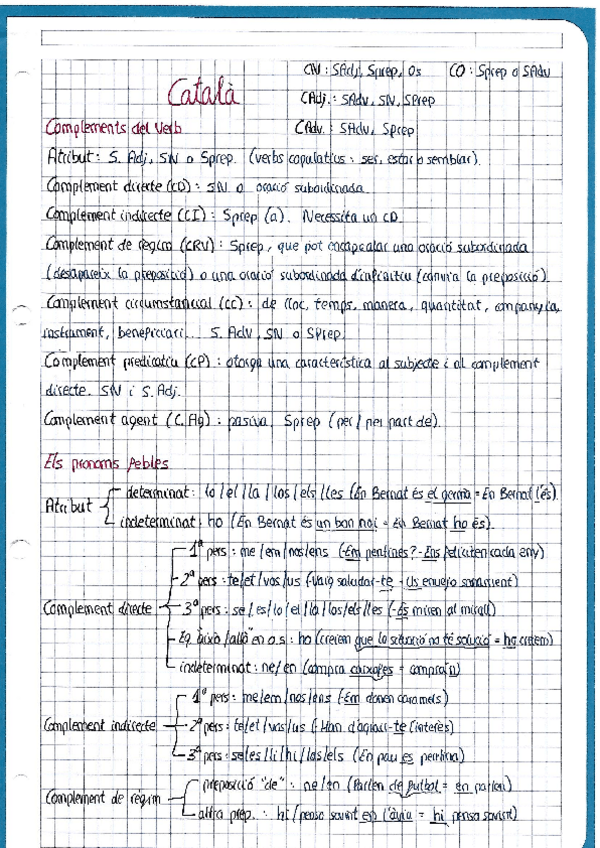 CN: SAdj, Sprep, Os CO: Sprep o SAdv
Català
CAdj.: SAdv, SN, SPrep
Complements del verb CAdv.: SAdv, Sprep
Atribut: S. Adj, SN o Sprep. (verbs copulatius: ser, estar o semblar).
Complement directe (CD): SN o oració subordinada.
Complement indirecte (CI): Sprep (a). Necessita un CD.
Complement de règim (CRV): Sprep, que pot encapçalar una oració subordinada
(desapareix la preposició) o una oració subordinada d'infinitiu (canvia la preposició).
Complement circumstancial (CC): de lloc, temps, manera, quantitat, companyia,
instrument, beneficiari... S. Adv, SN o SPrep.
Complement predicatiu (CP): otorga una característica al subjecte i al complement
directe. SN i S. Adj.
Complement agent (C. Ag): pasiva. Sprep (per / per part de).
Els pronoms febles
Atribut
determinat: lo/el/la/los/els/les (En Bernat és el germà = En Bernat l'és).
indeterminat: ho (En Bernat és un bon noi = En Bernat ho és).
Complement directe
1ª pers: me/em/nos/ens (-Em pentines? - Ens feliciten cada any)
2ª pers: te/et/vos/us (-Vaig saludar-te - Us enuejo sovament)
3ª pers: se/es/lo/el/la/los/els/les (-Es miren al mirall)
Eq. "això/allò" en o.s: ho (creiem que la situació no té solució = ho creiem)
indeterminat: ne/en (compra carxofes = compra'n)
Complement indirecte
1ª pers: me/em/nos/ens (-Em donen caramels)
2ª pers: te/et/vos/us (-Han d'agrair-te l'interès)
3ª pers: se/es/li/hi/los/els (En Pau es pentina)
Complement de règim
preposició "de": ne/en (Parlen de futbol = en parlen)
altra prep.: hi (penso sovint en l'àvia = hi penso sovint)